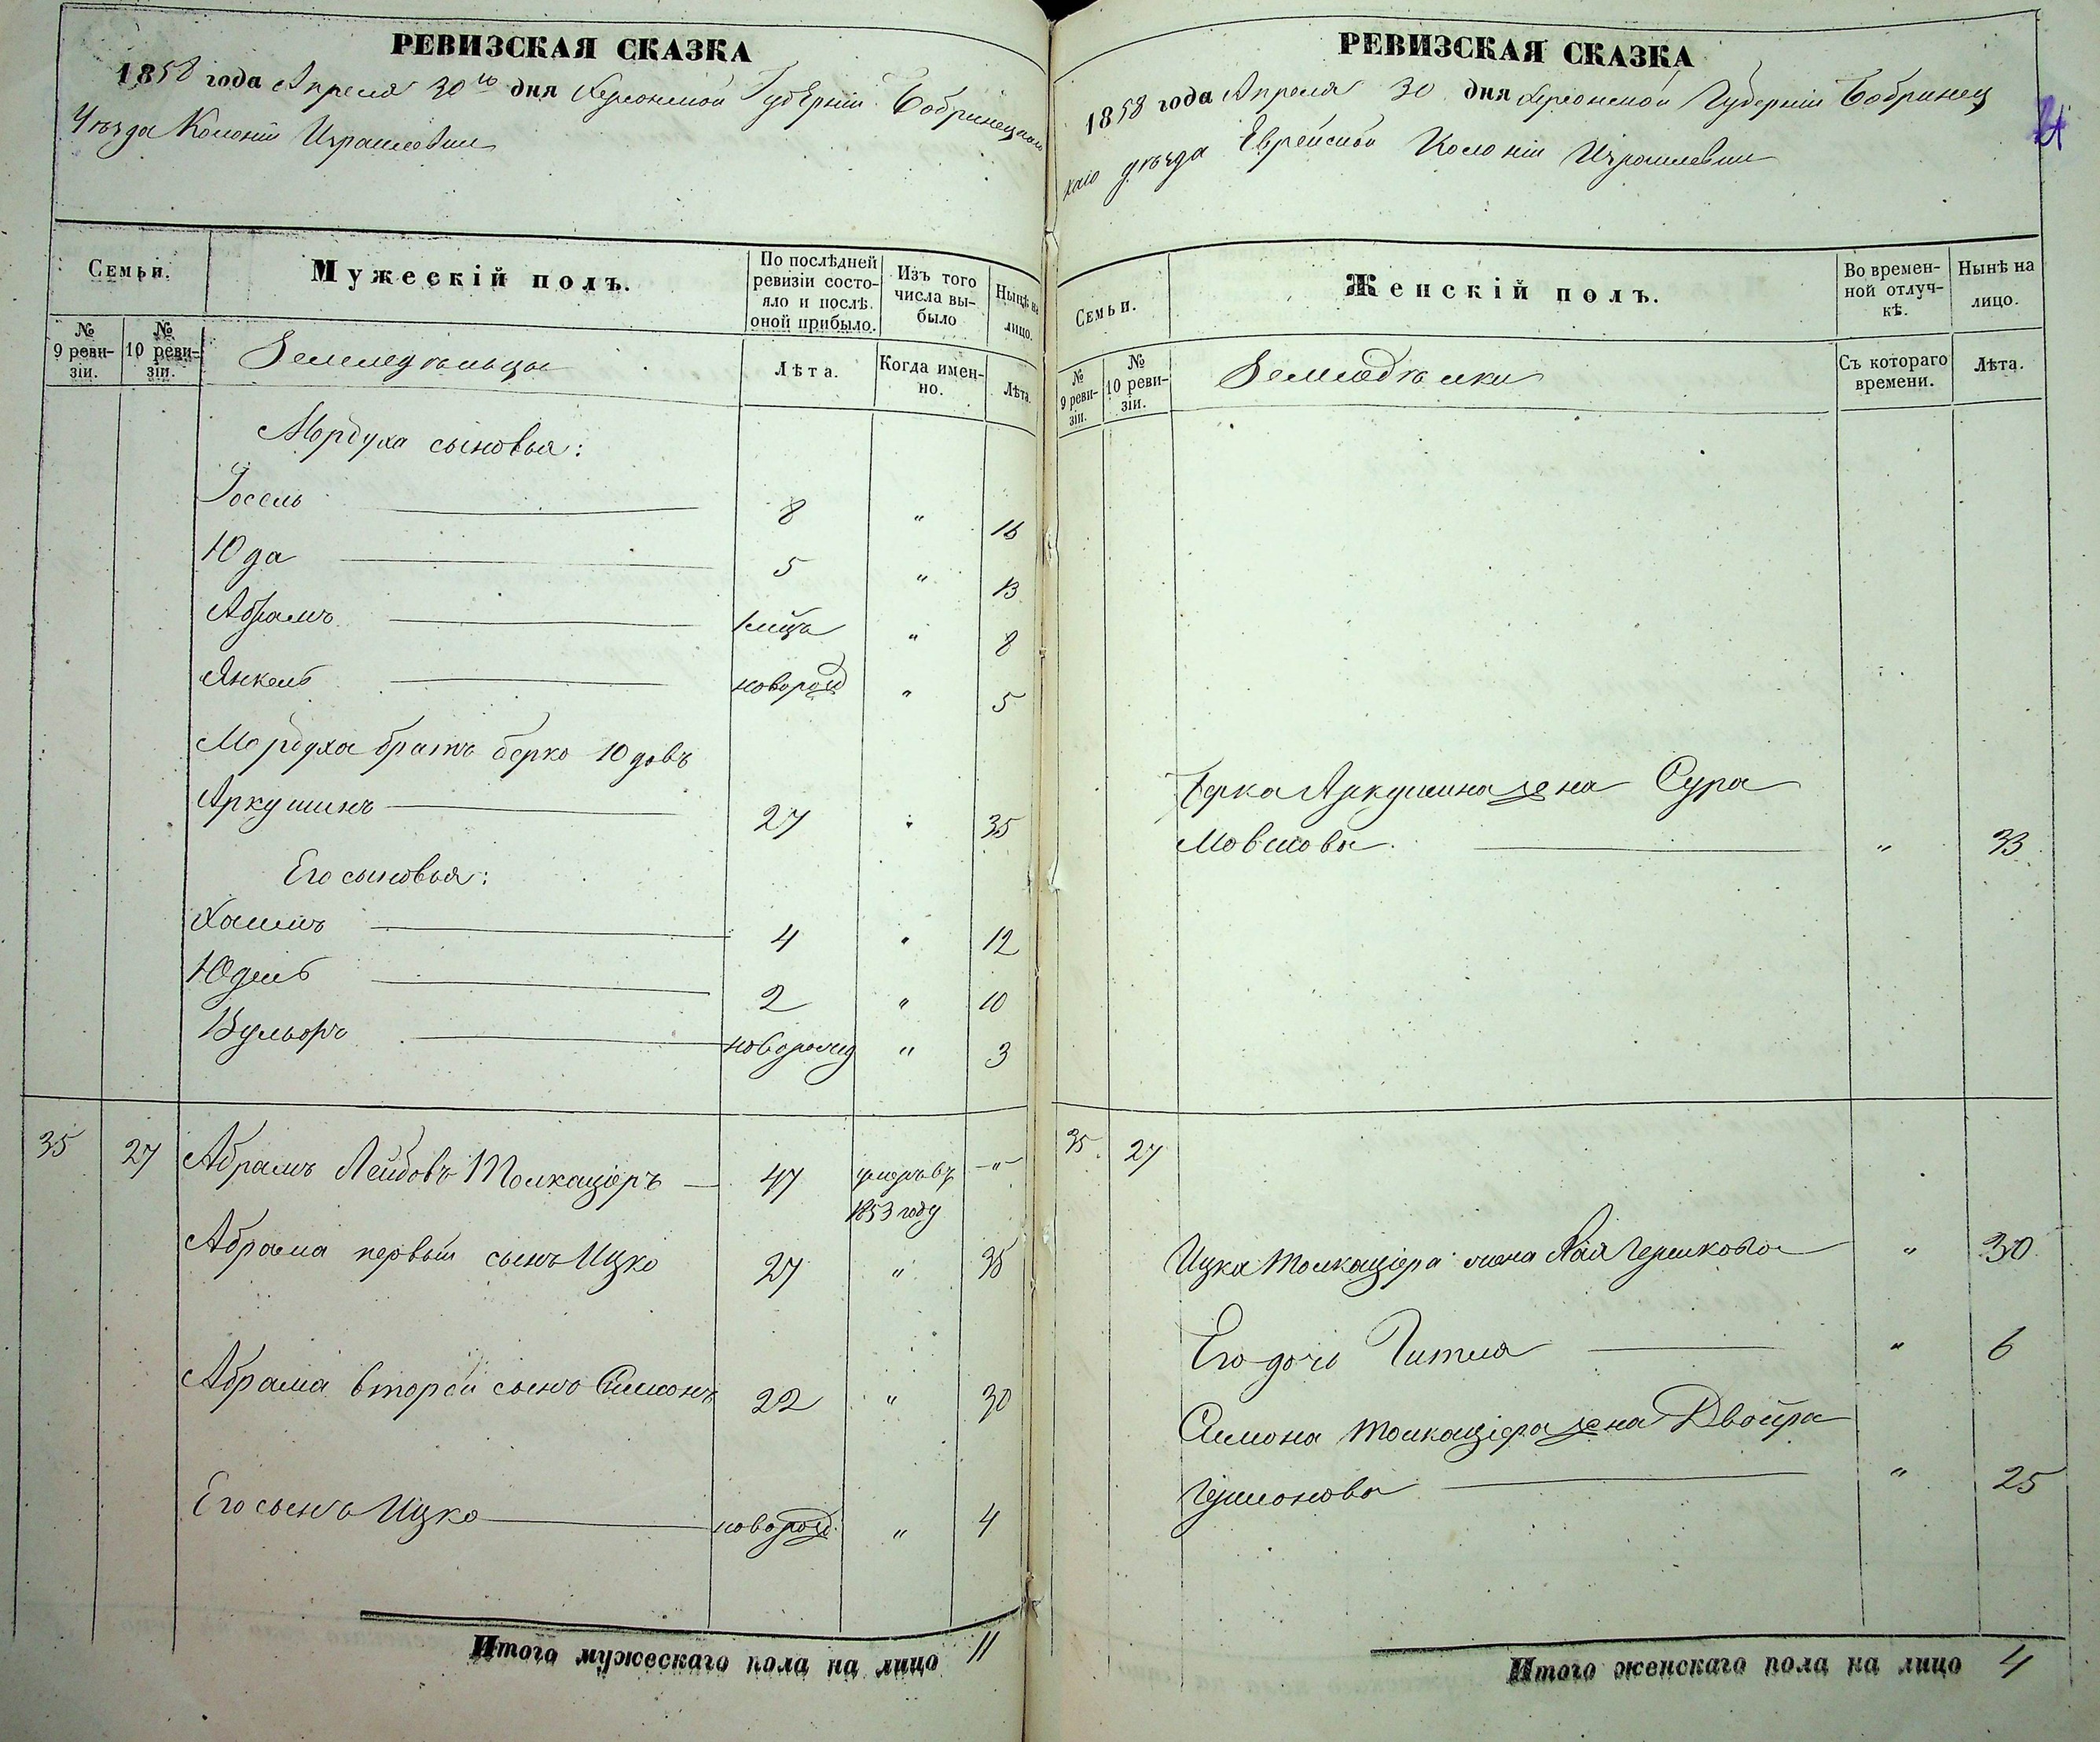 РЕВИЗСКАЯ СКАЗКА
1858 года Апреля 30го дня Херсонской Губерніи Бобринецкаго
Уѣзда Колоніи Израилевки
Семьи.
Мужескій полъ.
По послѣдней ревизіи состояло и послѣ оной прибыло.
Изъ того числа выбыло
Нынѣ на лицо.
№ 9 ревизіи.
№ 10 ревизіи.
Земледѣльцы
Лѣта.
Когда именно.
Лѣта.
Мордуха сыновья:
Іосель 8 " 16
Юда 5 " 13
Абрамъ " 8
Янкель новорожд " 5
Мордуха братъ Берко Юдовъ
Аркушинъ 27 " 35
Его сыновья:
Хаимъ 4 " 12
Юдель 2 " 10
новорожд " 3
35 27 Абрамъ Лейбовъ Толкациеръ 47 умеръ въ "
1853 году
Абрама первый сынъ Ицко 27 " 35
Абрама второй сынъ Симонъ 22 " 30
Его сынъ Ицко новорожд. " 4
Итого мужескаго пола на лицо 11
РЕВИЗСКАЯ СКАЗКА
1858 года Апреля 30 дня Херсонской Губерніи Бобринец
каго уѣзда Еврейской Колоніи Израилевки
21
Семьи.
Женскій полъ.
Во временной отлучкѣ.
Нынѣ на лицо.
№ 9 ревизіи.
№ 10 ревизіи.
Земледѣлки
Съ котораго времени.
Лѣта.
Берка Аркушина жена Сура
Мовшова " 33
35 27
Ицка Толкаціера жена Хая Гершкова " 30
Его дочь Гитля " 6
Симона Толкаціера жена Двойра
" 25
Итого женскаго пола на лицо 4